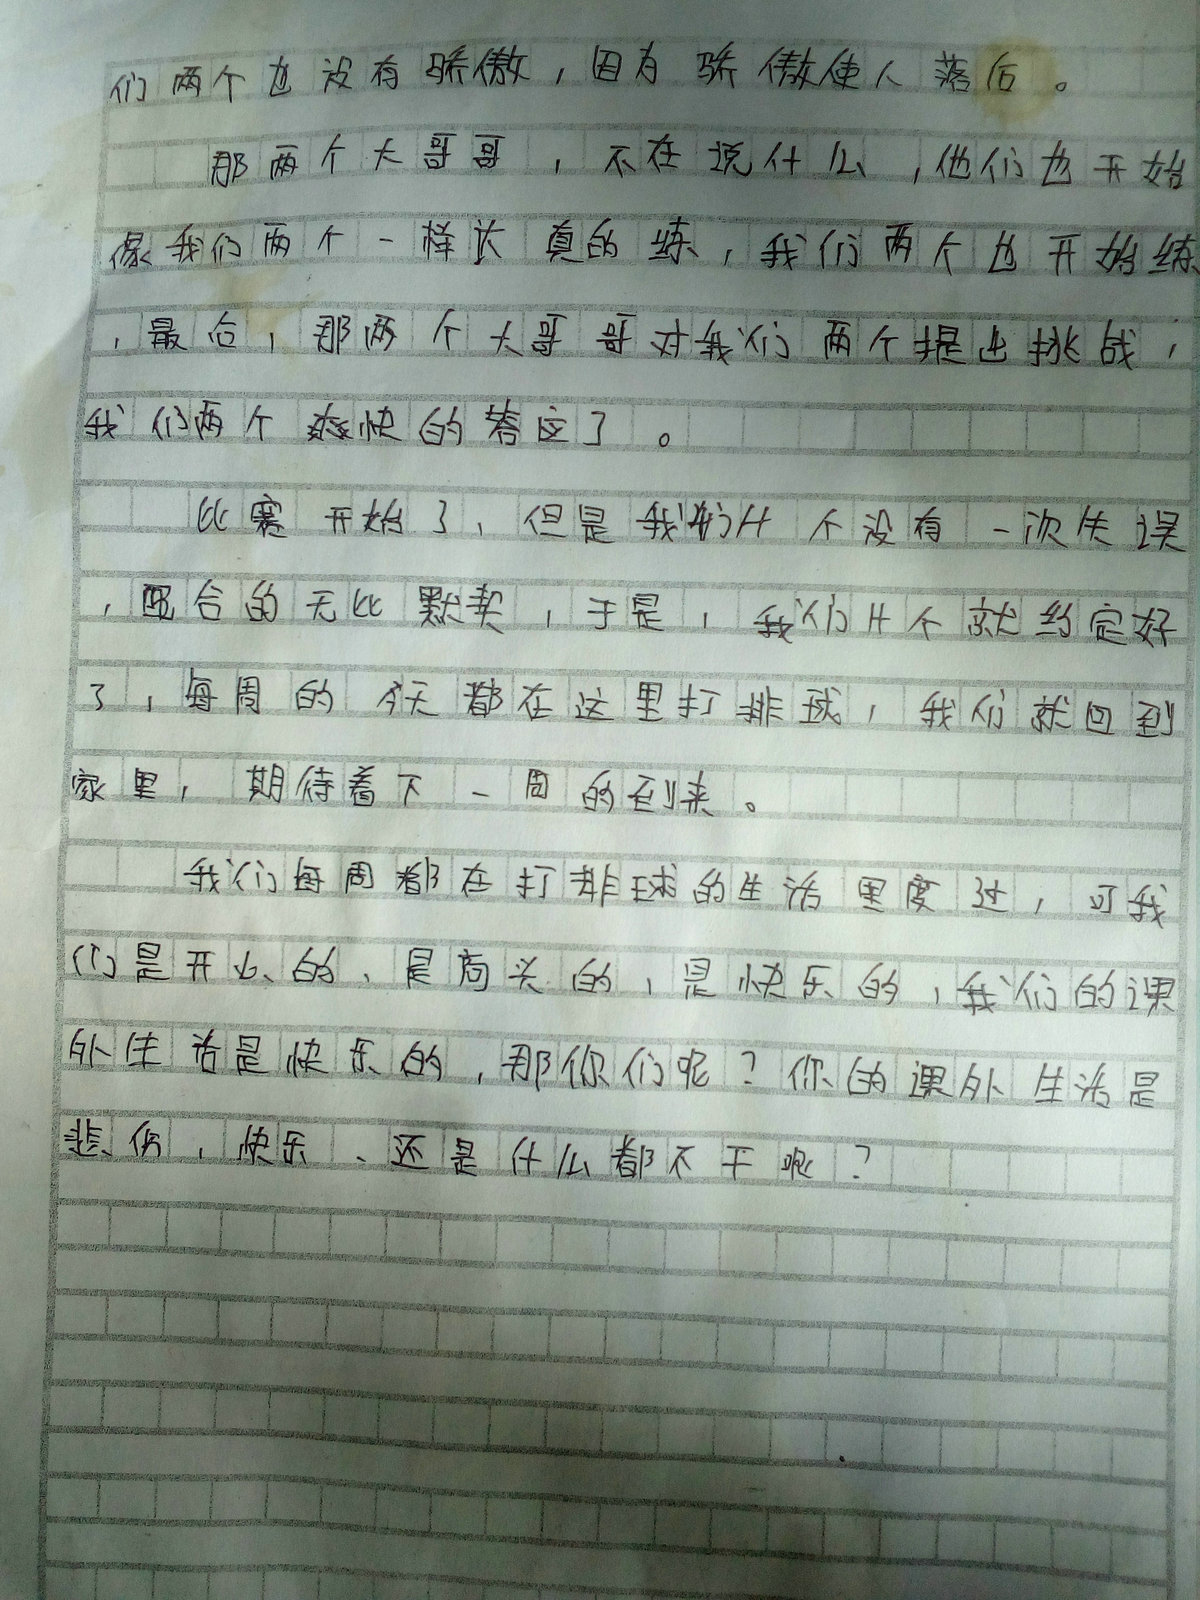 们两个也没有骄傲，因为骄傲使人落后。
那两个大哥哥，不在说什么，他们也开始
像我们两个一样认真的练，我们两个也开始练
，最后，那两个大哥哥对我们两个提出挑战，
我们两个爽快的答应了。
比赛开始了，但是我们4个没有一次失误
，配合的无比默契，于是，我们4个就约定好
了，每周的今天都在这里打排球，我们就回到
家里，期待着下一周的到来。
我们每周都在打排球的生活里度过，可我
们是开心的、是高兴的，是快乐的，我们的课
外生活是快乐的，那你们呢？你的课外生活是
悲伤，快乐、还是什么都不干呢？